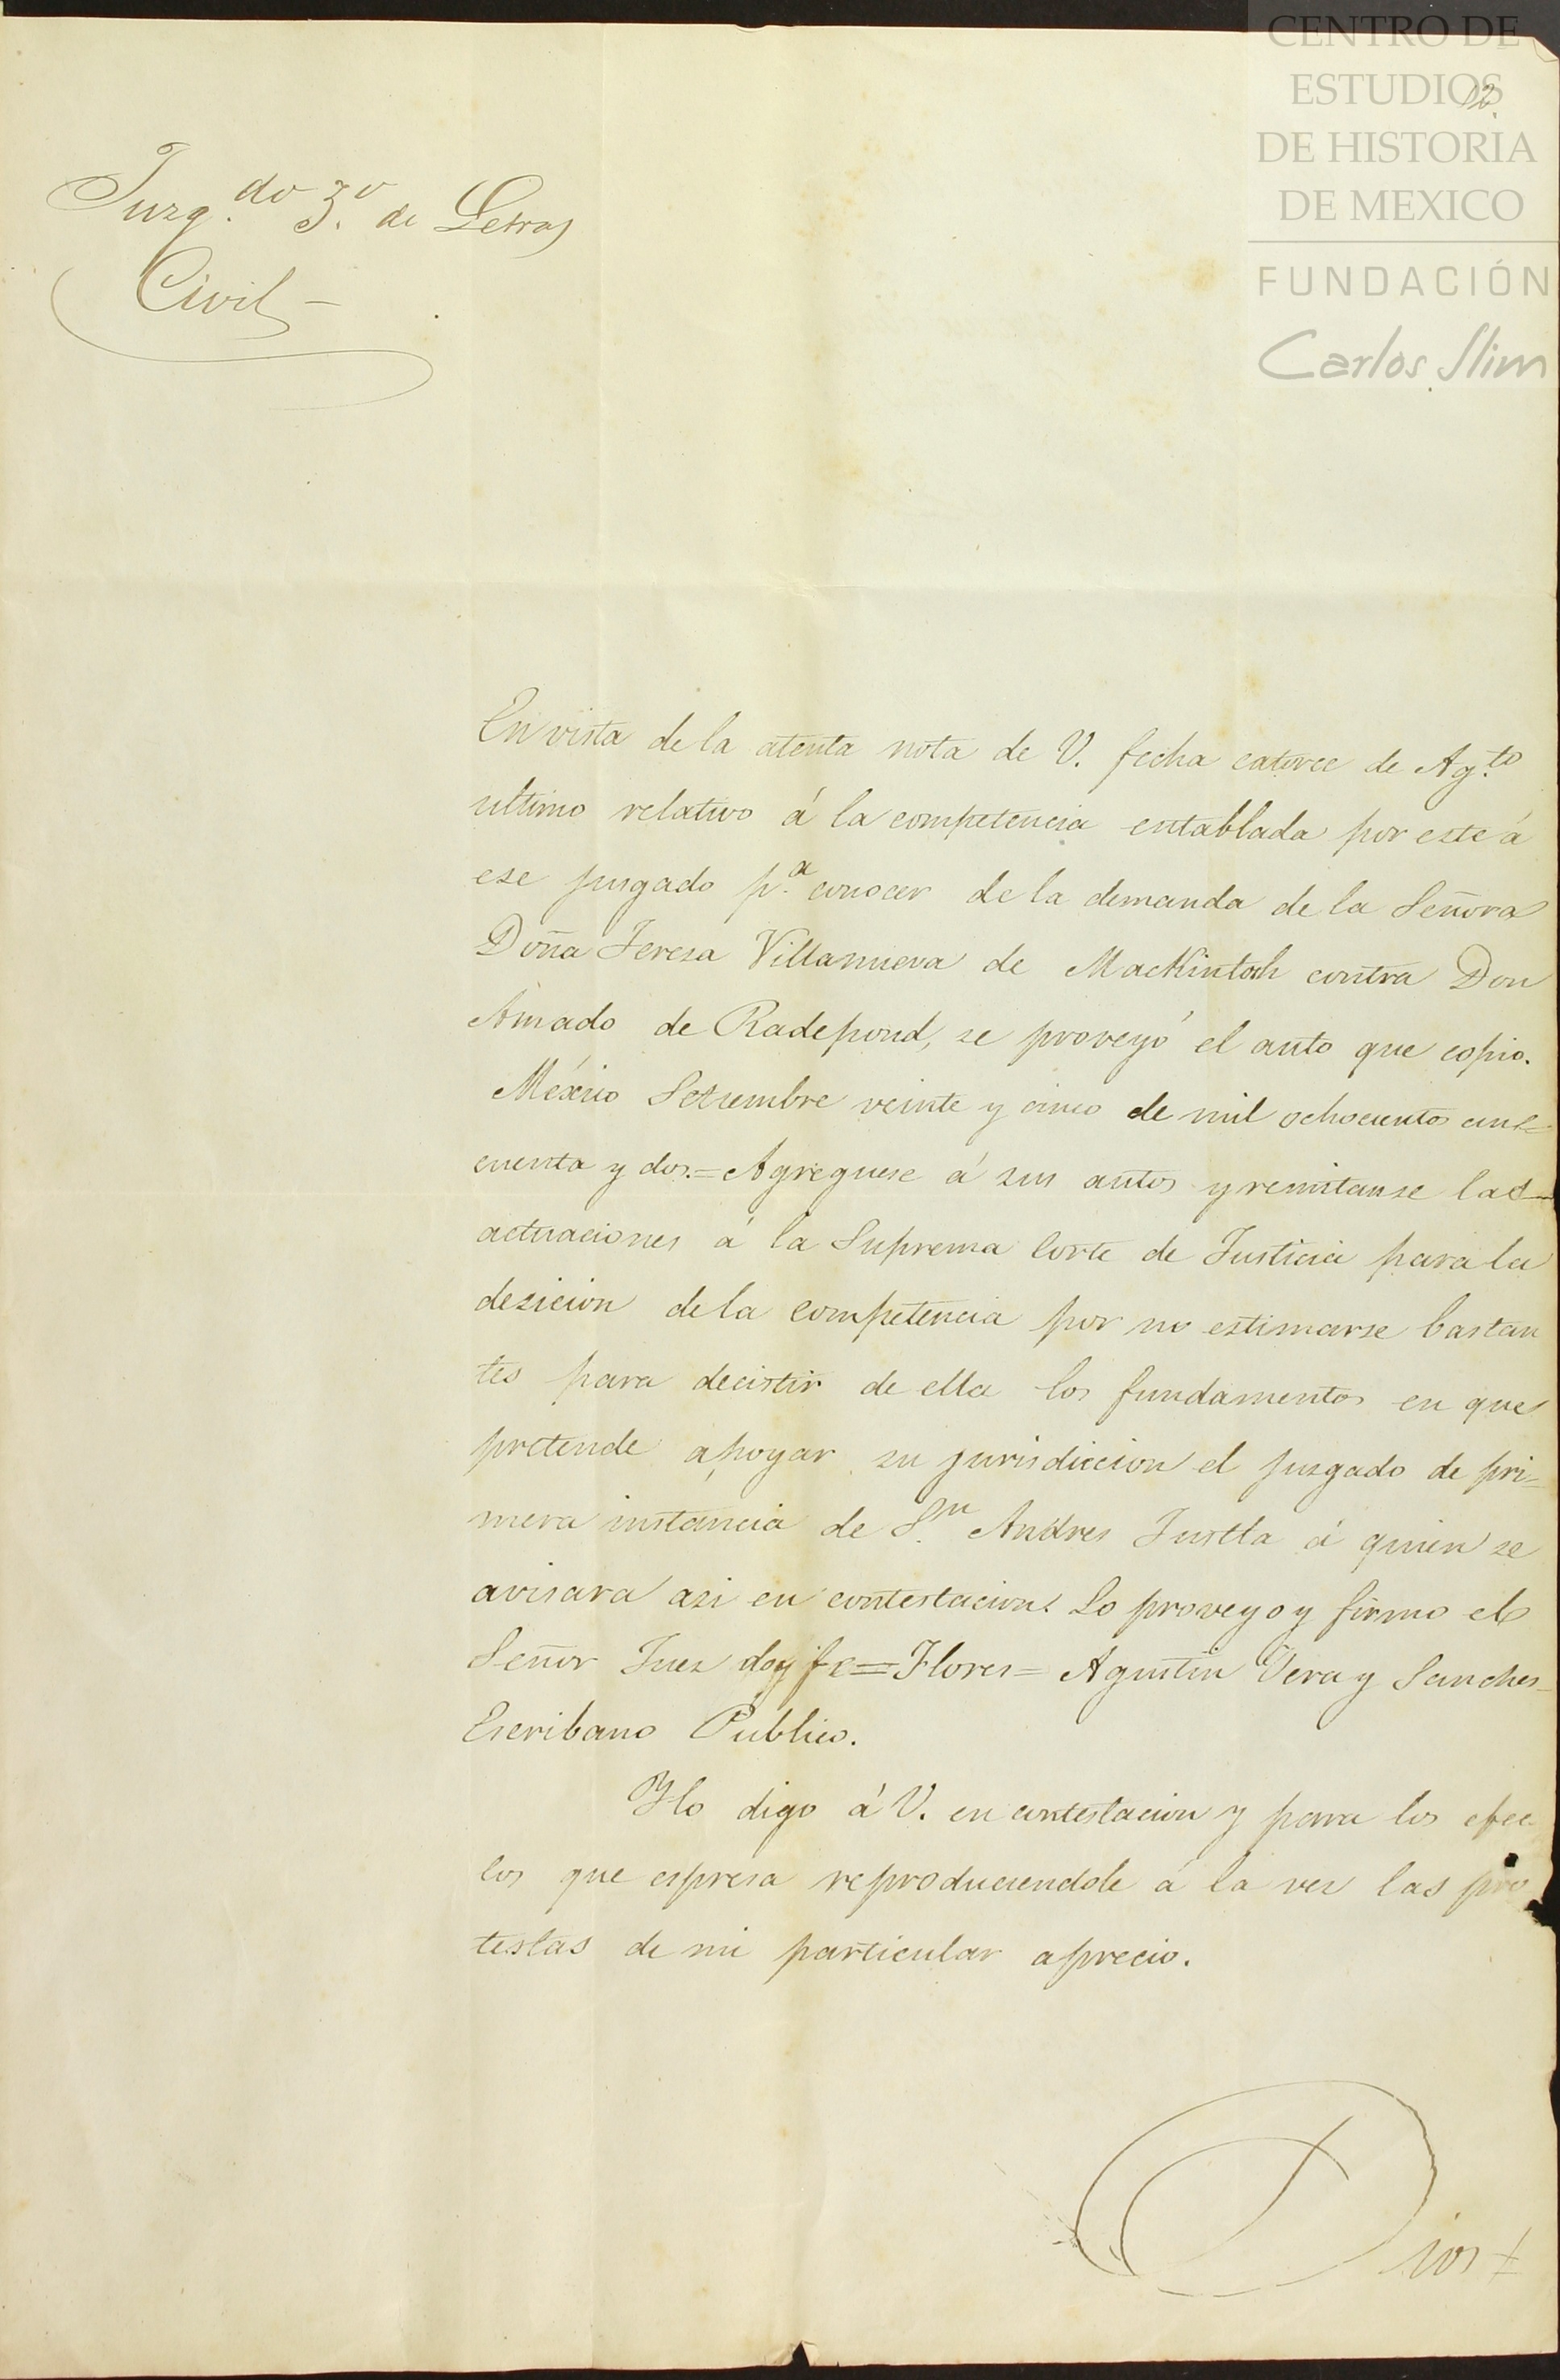 CENTRO DE
ESTUDIOS
DE HISTORIA
DE MEXICO
FUNDACIÓN
Carlos Slim
12.
Juzg.do 3.o de Letras
Civil
En vista de la atenta nota de V. fecha catorce de Ag.to
ultimo relativo á la competencia entablada por este á
ese juzgado p.a conocer de la demanda de la Señora
Doña Teresa Villanueva de MacKintosh contra Don
Amado de Radepond, se proveyó el auto que copio.
México Setiembre veinte y cinco de mil ochocientos cin=
cuenta y dos.= Agreguese á sus autos y remitanse las
actuaciones á la Suprema Corte de Justicia para la
desicion de la competencia por no estimarse bastan
tes para decistir de ella los fundamentos en que
pretende apoyar su jurisdiccion el juzgado de pri=
mera instancia de S.n Andres Tustla á quien se
avisara asi en contestacion. Lo proveyo y firmo el
Señor Juez doy fe= Flores= Agustin Vera y Sanches=
Escribano Publico.
Y lo digo á V. en contestacion y para los efec
tos que espresa reproduciendole á la vez las pro
testas de mi particular aprecio.
Dios